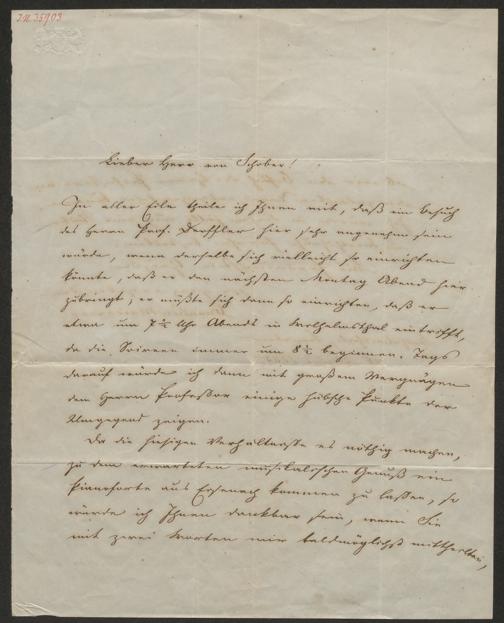 J.N. 35903
Lieber Herr von Schober!
In aller Eile theile ich Ihnen mit, daß ein Besuch
des Herrn Prof. Doeffler hier sehr angenehm sein
würde, wenn derselbe sich vielleicht so einrichten
könnte, daß er den nächsten Montag Abend hier
zubringt; er müßte sich dann so einrichten, daß er
etwa um 7½ Uhr Abends in Wilhelmsthal eintrifft,
da die Soireen immer um 8½ beginnen. Tags
darauf würde ich dann mit großem Vergnügen
dem Herrn Professor einige hübsche Punkte der
Umgegend zeigen.
Da die hiesigen Verhältnisse es nöthig machen,
zu dem erwarteten musikalischen Genuß ein
Pianoforte aus Eisenach kommen zu lassen, so
würde ich Ihnen dankbar sein, wenn Sie
mit zwei Worten mir baldmöglichst mittheilten,